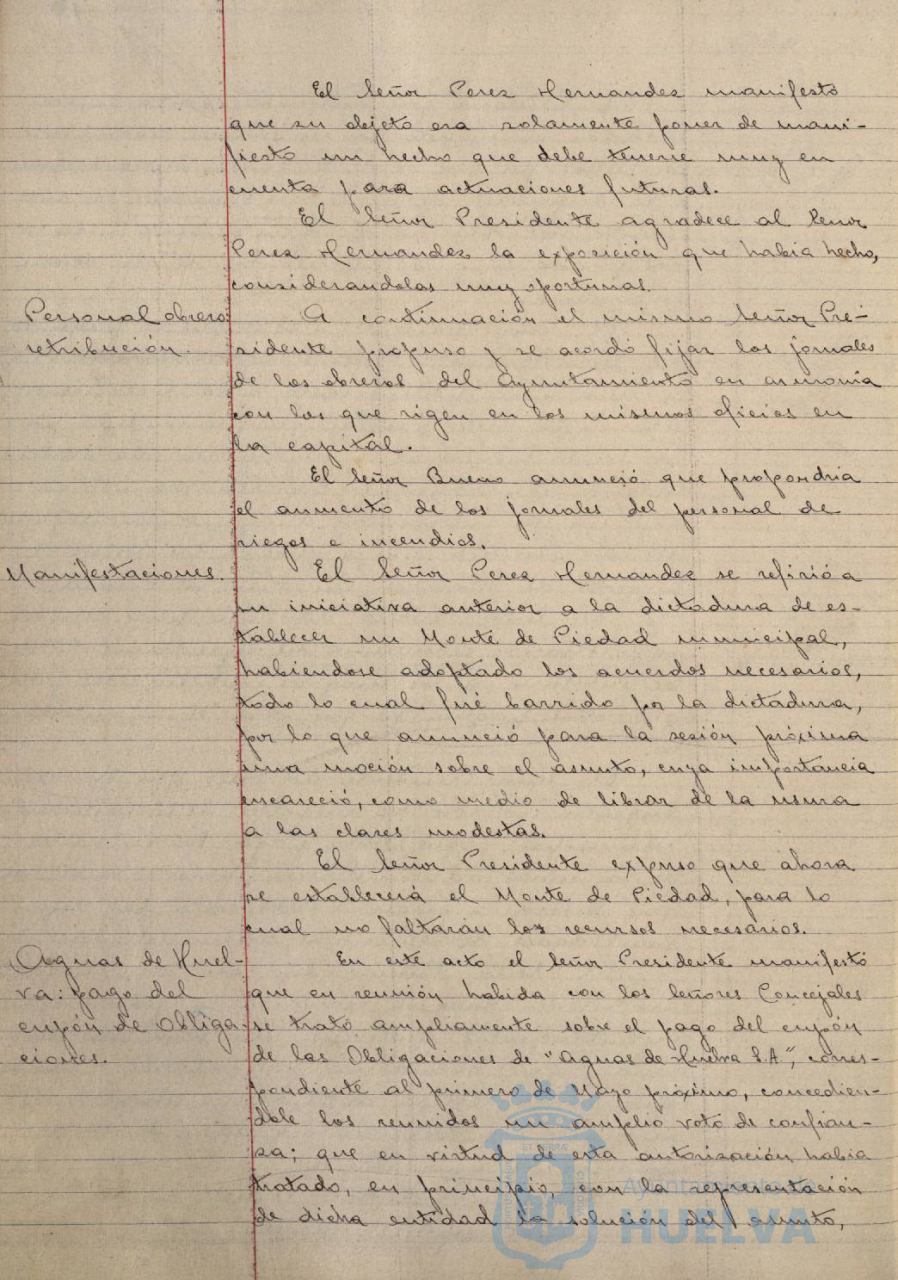 El Señor Perez Hernandez manifestó
que su objeto era solamente poner de mani-
fiesto un hecho que debe tenerse muy en
cuenta para actuaciones futuras.
El Señor Presidente agradece al Señor
Perez Hernandez la exposición que habia hecho,
considerandolas muy oportunas.
Personal obrero:
retribución.
A continuación el mismo Señor Pre-
sidente propuso y se acordó fijar los jornales
de los obreros del Ayuntamiento en armonia
con los que rigen en los mismos oficios en
la capital.
El Señor Bueno anunció que propondria
el aumento de los jornales del personal de
riegos e incendios.
Manifestaciones.
El Señor Perez Hernandez se refirió a
su iniciativa anterior a la dictadura de es-
tablecer un Monte de Piedad municipal,
habiendose adoptado los acuerdos necesarios,
todo lo cual fué barrido por la dictadura,
por lo que anunció para la sesión próxima
una moción sobre el asunto, cuya importancia
encareció, como medio de librar de la usura
a las clases modestas.
El Señor Presidente expuso que ahora
se establecerá el Monte de Piedad, para lo
cual no faltarán los recursos necesarios.
Aguas de Huel-
va: pago del
cupón de Obliga-
ciones.
En este acto el Señor Presidente manifestó
que en reunión habida con los Señores Concejales
se trató ampliamente sobre el pago del cupón
de las Obligaciones de "Aguas de Huelva S.A", corres-
pondiente al primero de Mayo próximo, concedien-
dole los reunidos un amplio voto de confian-
za; que en virtud de esta autorización habia
tratado, en principio, con la representación
de dicha entidad la solución del asunto,
Ayuntamiento de
HUELVA